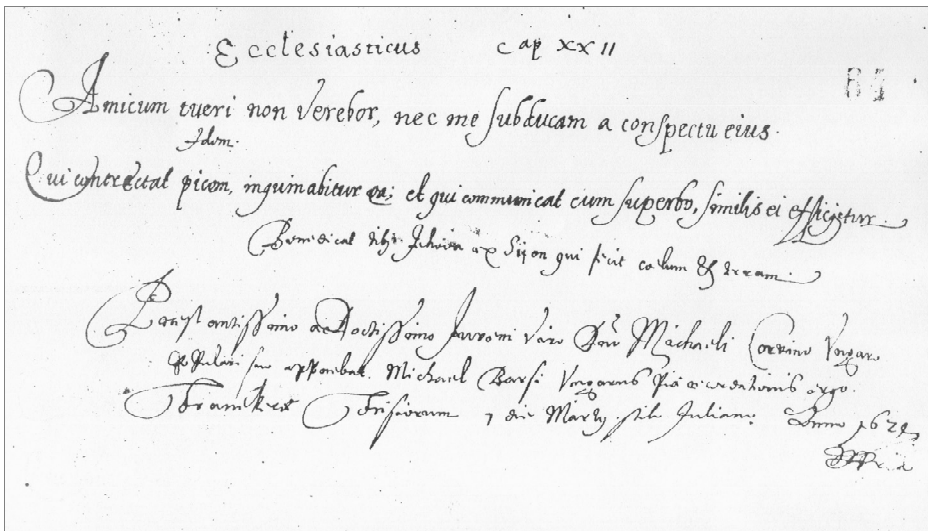 Ecclesiasticus cap XXII
Amicum tueri non verebor, nec me subducam a conspectu eius.
Idem.
Qui contrectat picem, inquinabitur ea; et qui communicat cum superbo, similis ei efficietur.
Benedicat tibi Jehova ex Sijon qui fecit coelum et terram.
Praestantissimo ac Doctissimo Juveni Viro Michaeli Ungaro
Populari suo apponebat Michael Barsi Ungarus recordationis ergo.
Franekerae Frisiorum 7 die Martij stil. Juliani Anno